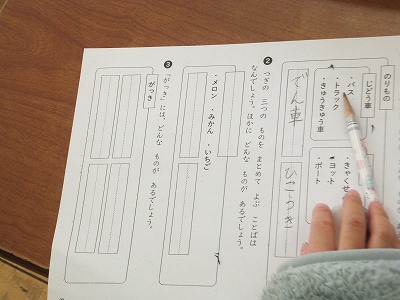 のりもの
じどう車
・バス
・トラック
・きゅうきゅう車
でん車
・きゃくせ
・ヨット
・ボート
ひこうき
❷ つぎの 三つの ものを まとめて よぶ ことばは
なんでしょう。ほかに どんな ものが あるでしょう。
・メロン ・みかん ・いちご
❸ 「がっき」には、どんな ものが あるでしょう。
がっき